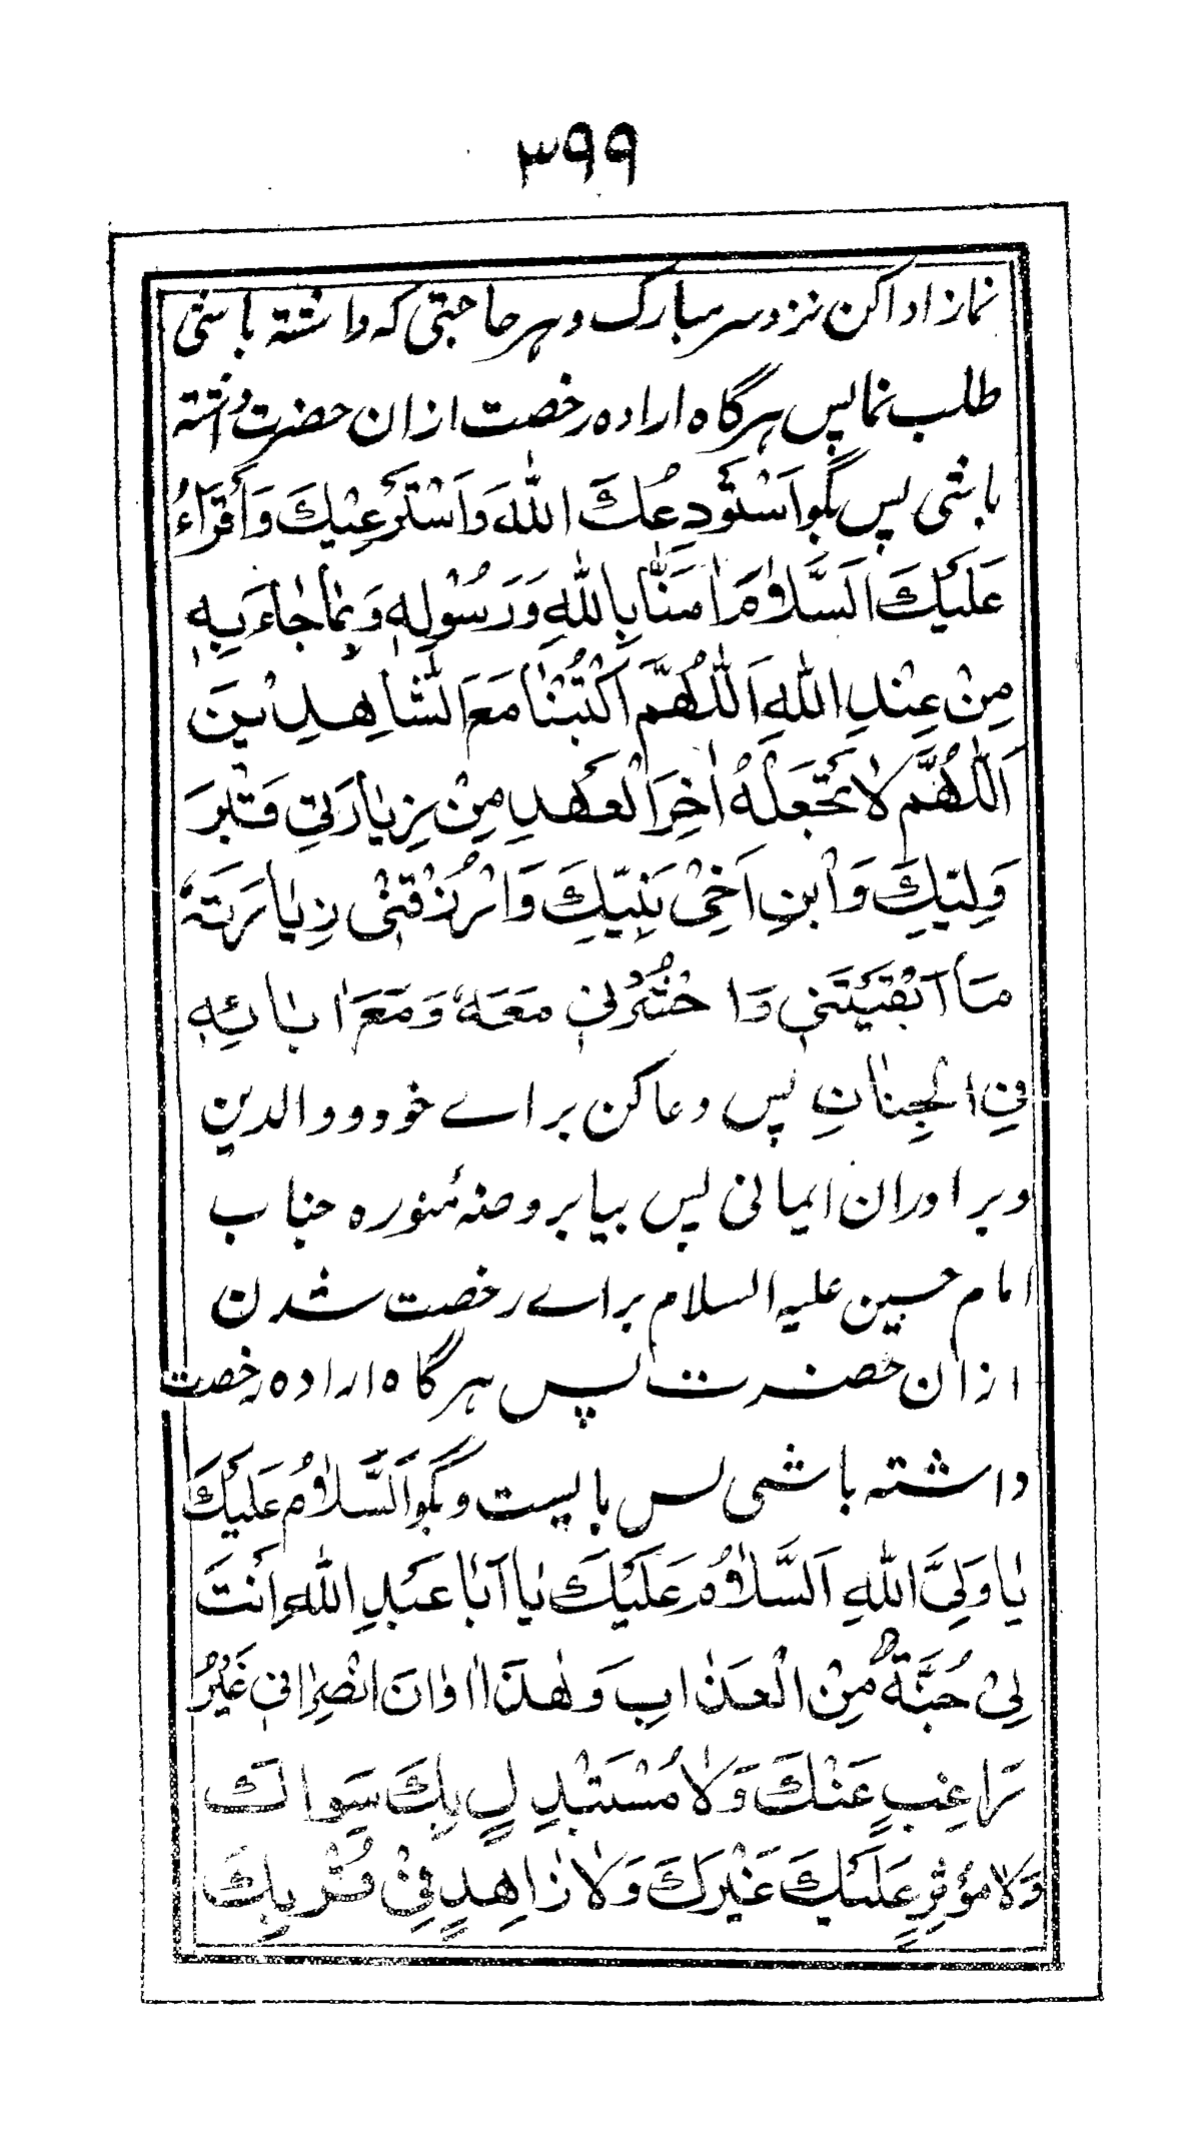 ۳۹۹
نماز ادا کن نزد سر مبارک و هر حاجتی که داشته باشی
طلب نما پس هرگاه اراده رخصت ازان حضرت داشته
باشی پس بگو اَسْتَودِعُكَ اللّٰهَ وَاَسْتَرْعِیْكَ وَاَقْرَاءُ
عَلَیْكَ السَّلَامَ اٰمَنَّا بِاللّٰهِ وَرَسُوْلِهٖ وَبِمٰا جٰاءَ بِهٖ
مِنْ عِنْدِ اللّٰهِ اَللّٰهُمَّ اكْتُبْنٰا مَعَ الشّٰاهِدِیْنَ
اَللّٰهُمَّ لٰا تَجْعَلْهُ اٰخِرَ الْعَهْدِ مِنْ زِیٰارَتِی قَبْرَ
وَلِیِّكَ وَابْنِ اَخِیْ نَبِیِّكَ وَارْزُقْنِیْ زِیٰارَتَهٗ
مَا اَبْقَیْتَنِی وَا حْشُرْنِی مَعَهٗ وَمَعَ اٰبٰائِهٖ
فِی الْجِنٰانِ پس دعا کن براے خود و والدین
و برادران ایمانی پس بیا بروضهٔ منوره جناب
امام حسین علیه السلام براے رخصت شدن
ازان حضرت پس هرگاه اراده رخصت
داشته باشی پس بایست و بگو اَلسَّلٰامُ عَلَیْكَ
یٰا وَلِیَّ اللّٰهِ اَلسَّلٰامُ عَلَیْكَ یٰا اَبٰا عَبْدِ اللّٰهِ اَنْتَ
لِیْ جُنَّةٌ مِنَ الْعَذٰابِ وَهٰذَا اَوٰانَ انْصِرٰافِی غَیْرُ
رَاغِبٍ عَنْكَ وَلٰا مُسْتَبْدِلٍ بِكَ سِوَاكَ
وَلٰا مُؤْثِرٍ عَلَیْكَ غَیْرَكَ وَلٰا زٰاهِدٍ فِیْ قُرْبِكَ